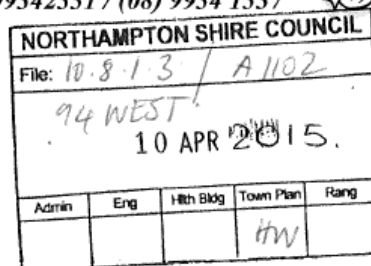 (08) 9934 1337
NORTHAMPTON SHIRE COUNCIL
File: 10.8.1.3 / A1102
94 WEST.
10 APR 2015.
Admin Eng Hlth Bldg Town Plan Rang
HW